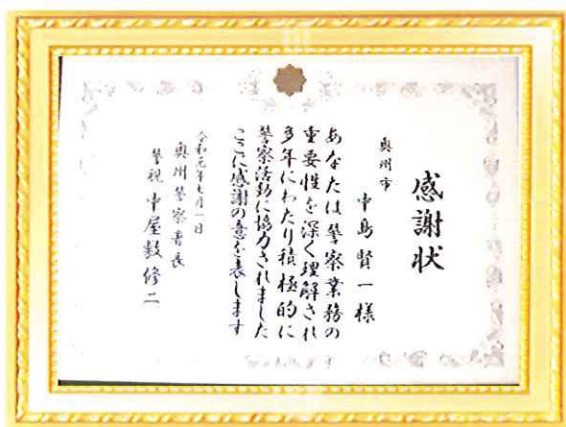 感謝状
奥州市
中島賢一様
あなたは警察業務の
重要性を深く理解され
多年にわたり積極的に
警察活動に協力されました
ここに感謝の意を表します
令和元年七月一日
奥州警察署長
警視 中屋敷修二